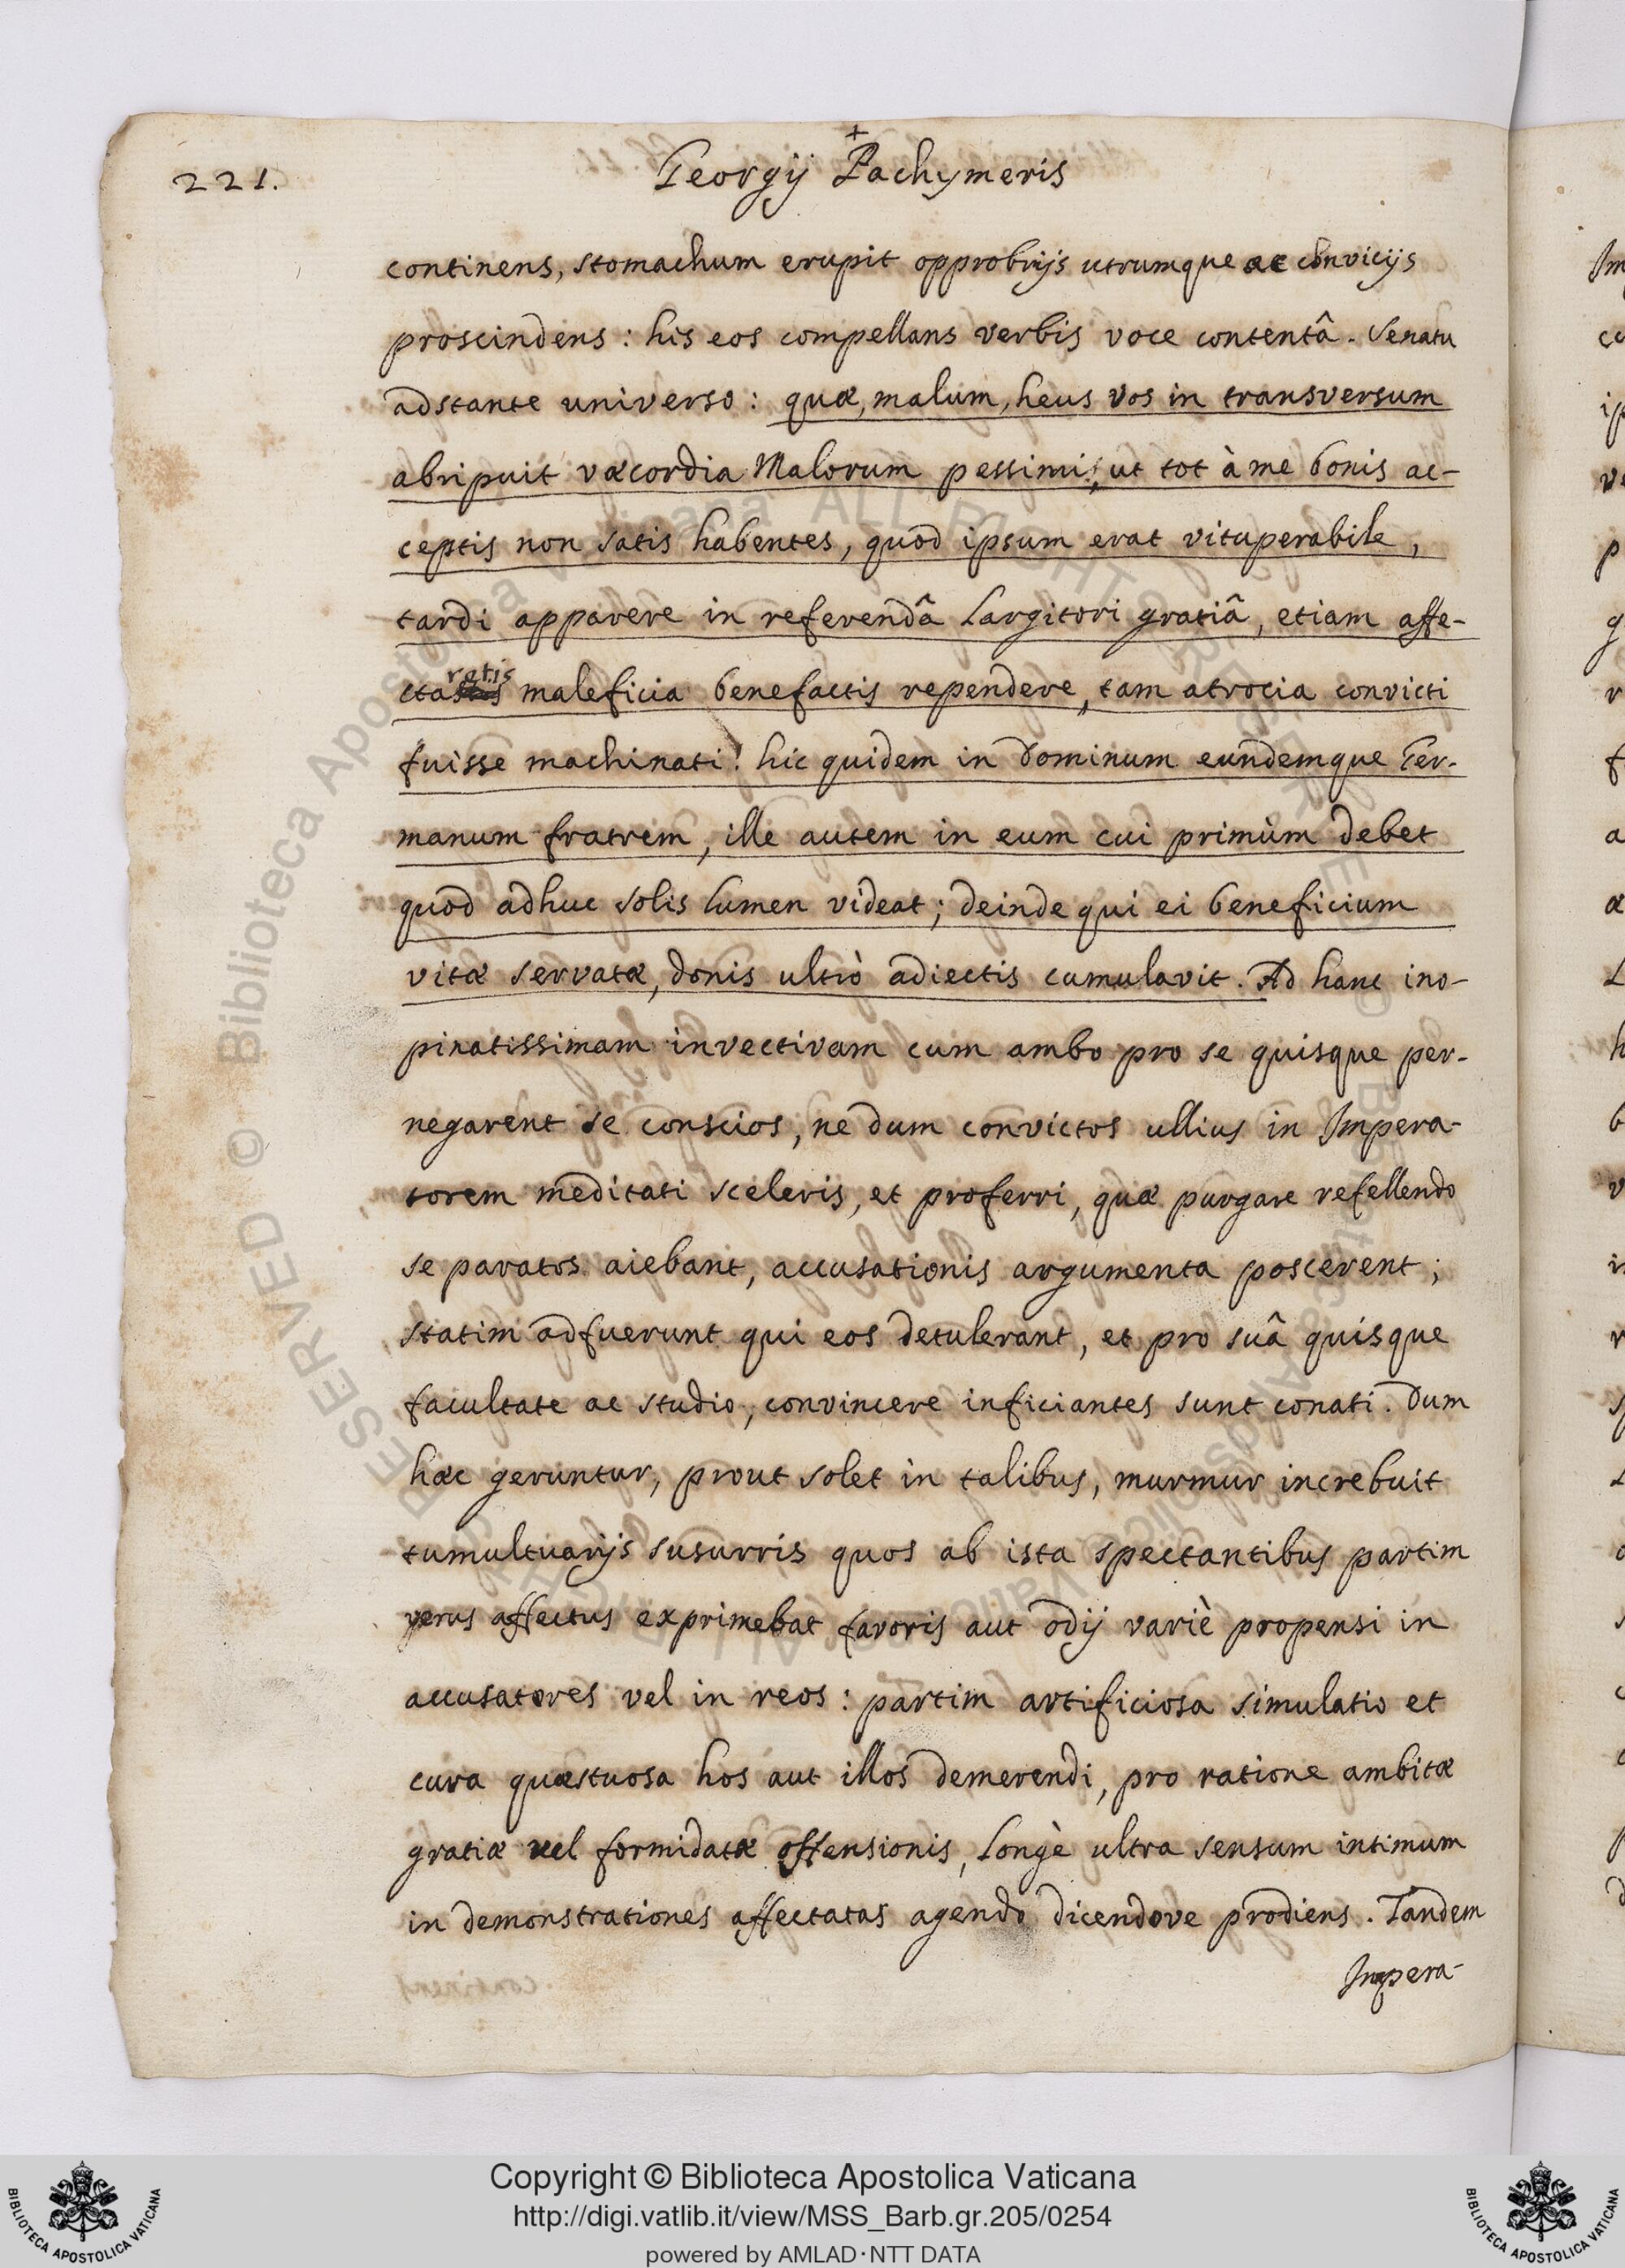 221.
Georgij Pachymeris
continens, stomachum erupit opprobrijs utrumque ac convicijs
proscindens : his eos compellans verbis voce contentâ. Senatu
adstante universo : quæ, malum, heus vos in transversum
abripuit væcordia Malorum pessimi, ut tot à me bonis ac-
ceptis non satis habentes, quod ipsum erat vituperabile,
tardi apparere in referendâ Largitori gratiâ, etiam affe-
ctaratis maleficia benefactis rependere, tam atrocia convicti
fuisse machinati! hic quidem in Dominum eundemque Ger-
manum fratrem, ille autem in eum cui primùm debet
quod adhuc solis lumen videat; deinde qui ei beneficium
vitæ servatæ, donis ultrò adiectis cumulavit. Ad hanc ino-
pinatissimam invectivam cum ambo pro se quisque per-
negarent se conscios, ne dum convictos ullius in Impera-
torem meditati sceleris, et proferri, quæ purgare refellendo
se paratos aiebant, accusationis argumenta poscerent;
statim adfuerunt qui eos detulerant, et pro suâ quisque
facultate ac studio, convincere inficiantes sunt conati. Dum
hæc geruntur, prout solet in talibus, murmur increbuit
tumultuarijs susurris quos ab ista spectantibus partim
verus affectus exprimebat favoris aut odij variè propensi in
accusatores vel in reos : partim artificiosa simulatio et
cura quæstuosa hos aut illos demerendi, pro ratione ambitæ
gratiæ vel formidatæ offensionis, Longè ultra sensum intimum
in demonstrationes affectatas agendo dicendove prodiens. Tandem
Impera-
Copyright © Biblioteca Apostolica Vaticana
http://digi.vatlib.it/view/MSS_Barb.gr.205/0254
powered by AMLAD·NTT DATA
BIBLIOTECA APOSTOLICA VATICANA
BIBLIOTECA APOSTOLICA VATICANA